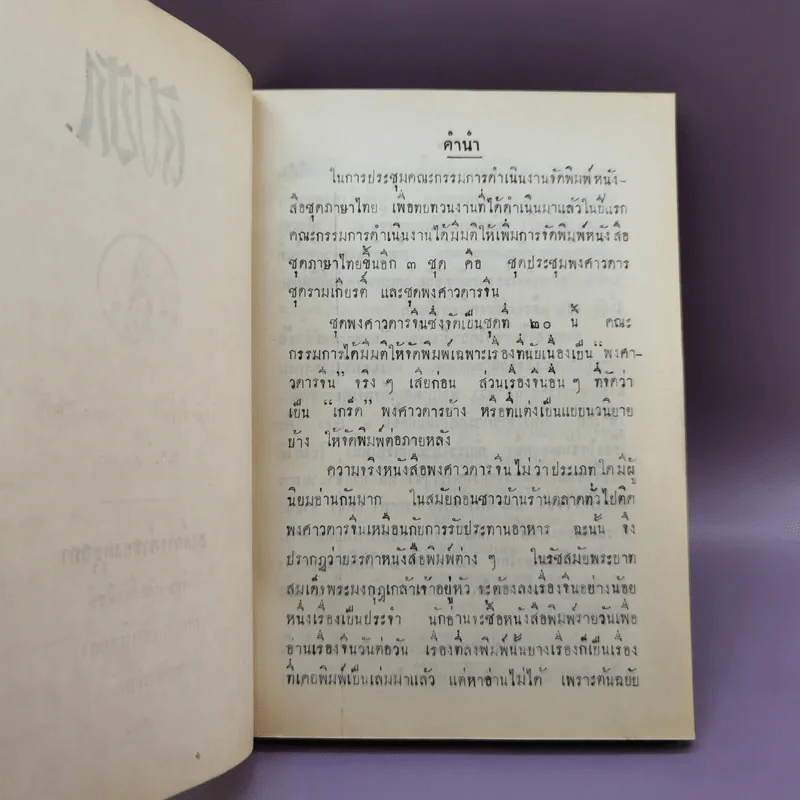 คำนำ
ในการประชุมคณะกรรมการดำเนินงานจัดพิมพ์หนัง-
สือชุดภาษาไทย เพื่อทบทวนงานที่ได้ดำเนินมาแล้วในปีแรก
คณะกรรมการดำเนินงานได้มีมติให้เพิ่มการจัดพิมพ์หนังสือ
ชุดภาษาไทยขึ้นอีก ๓ ชุด คือ ชุดประชุมพงศาวดาร
ชุดรามเกียรติ์ และชุดพงศาวดารจีน
ชุดพงศาวดารจีนซึ่งจัดเป็นชุดที่ ๒๐ นี้ คณะ
กรรมการได้มีมติให้จัดพิมพ์เฉพาะเรื่องที่นับเนื่องเป็น "พงศา-
วดารจีน" จริง ๆ เสียก่อน ส่วนเรื่องจีนอื่น ๆ ที่จัดว่า
เป็น "เกร็ด" พงศาวดารบ้าง หรือที่แต่งเป็นแบบนวนิยาย
บ้าง ให้จัดพิมพ์ต่อภายหลัง
ความจริงหนังสือพงศาวดารจีนไม่ว่าประเภทใด มีผู้
นิยมอ่านกันมาก ในสมัยก่อนชาวบ้านร้านตลาดทั่วไปติด
พงศาวดารจีนเหมือนกับการรับประทานอาหาร ฉะนั้น จึง
ปรากฏว่าบรรดาหนังสือพิมพ์ต่าง ๆ ในรัชสมัยพระบาท
สมเด็จพระมงกุฎเกล้าเจ้าอยู่หัว จะต้องลงเรื่องจีนอย่างน้อย
หนึ่งเรื่องเป็นประจำ นักอ่านจะซื้อหนังสือพิมพ์รายวันเพื่อ
อ่านเรื่องจีนวันต่อวัน เรื่องที่ลงพิมพ์นั้นบางเรื่องก็เป็นเรื่อง
ที่เคยพิมพ์เป็นเล่มมาแล้ว แต่หาอ่านไม่ได้ เพราะต้นฉบับ